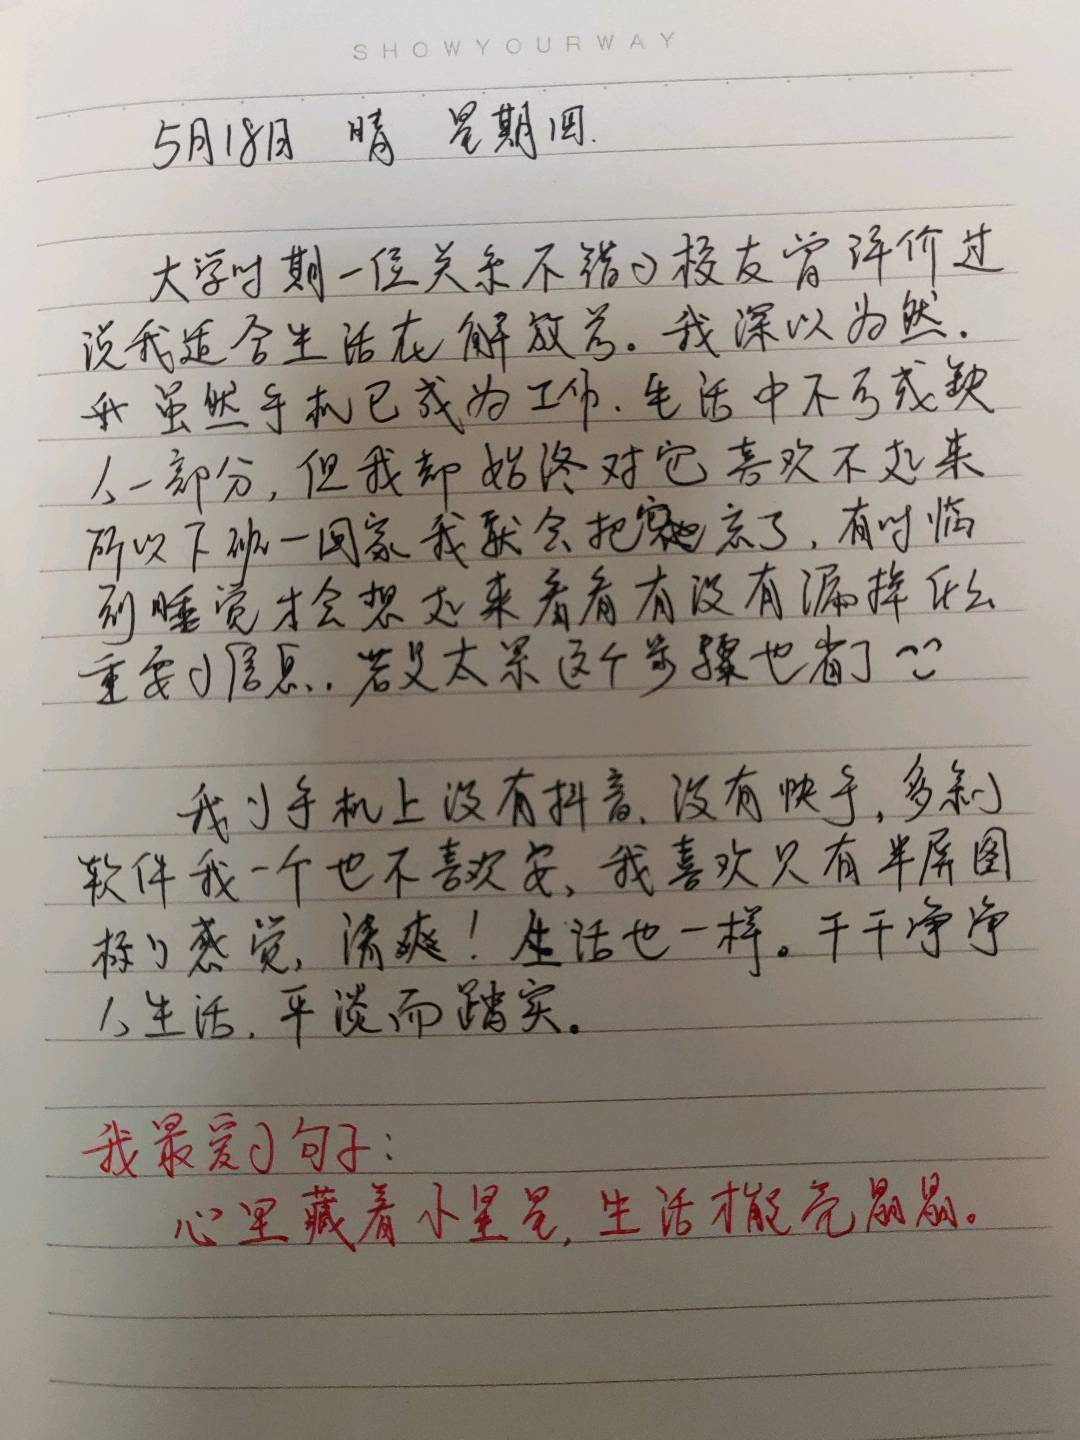 SHOWYOURWAY
5月18日 晴 星期四.
大学时期一位关系不错的校友曾评价过
说我适合生活在解放前。我深以为然.
我虽然手机已成为工作、生活中不可或缺
的一部分,但我却始终对它喜欢不起来
所以下班一回家我就会把它忘了,有时临
到睡觉才会想起来看看有没有漏掉什么
重要的信息.若是太累这个步骤也省了
我的手机上没有抖音、没有快手,多余的
软件我一个也不喜欢安、我喜欢只有半屏图
标的感觉,清爽!生活也一样。干干净净
的生活.平淡而踏实。
我最爱的句子:
心里藏着小星星,生活才能亮晶晶。